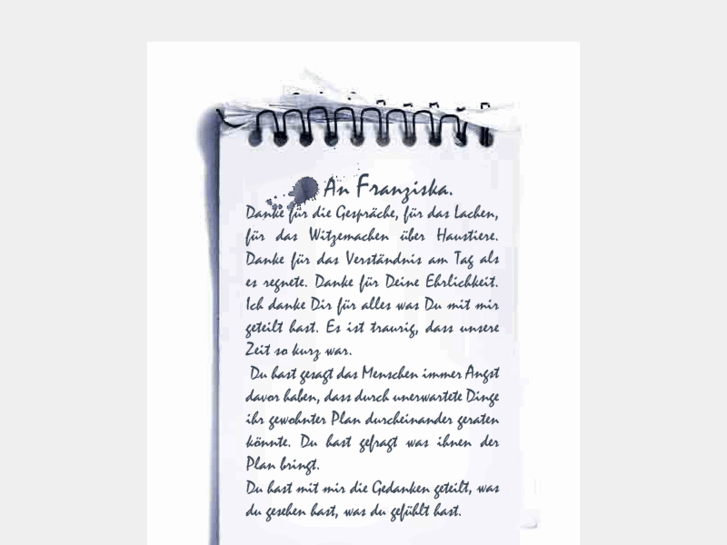 An Franziska.
Danke für die Gespräche, für das Lachen,
für das Witzemachen über Haustiere.
Danke für das Verständnis am Tag als
es regnete. Danke für Deine Ehrlichkeit.
Ich danke Dir für alles was Du mit mir
geteilt hast. Es ist traurig, dass unsere
Zeit so kurz war.
Du hast gesagt das Menschen immer Angst
davor haben, dass durch unerwartete Dinge
ihr gewohnter Plan durcheinander geraten
könnte. Du hast gefragt was ihnen der
Plan bringt.
Du hast mit mir die Gedanken geteilt, was
du gesehen hast, was du gefühlt hast.